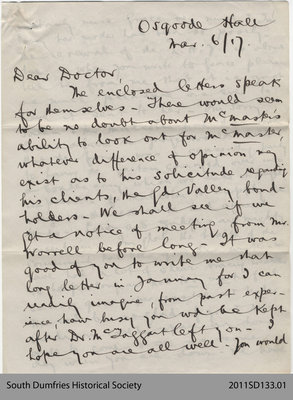 Osgoode Hall
Mar. 6/17.
Dear Doctor,
The enclosed letters speak
for themselves - There would seem
to be no doubt about McMaster's
ability to look out for McMaster,
whatever difference of opinion may
exist as to his solicitude regarding
his clients, the Gd. Valley bond-
holders - We shall see if we
got a notice of meeting from Mr.
Worrell before long - It was
good of you to write me that
long letter in January for I can
easily imagine, from past exper-
ience, how busy you wd be kept
after Dr. McTaggart left you - I
hope you are all well - You would
South Dumfries Historical Society
2011SD133.01